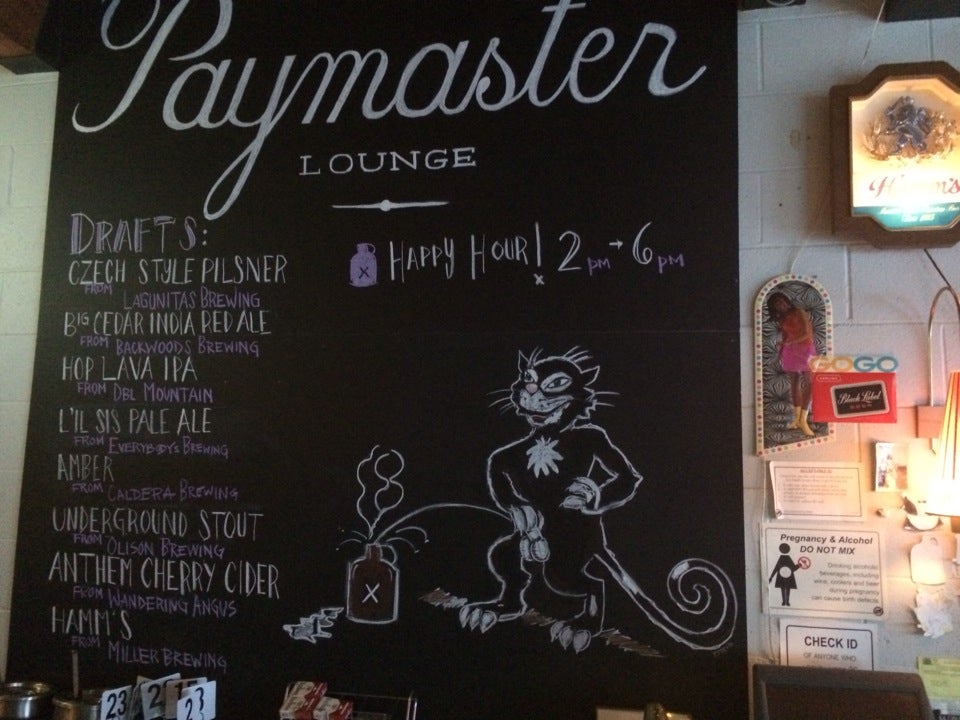 Paymaster
LOUNGE
DRAFTS:
CZECH STYLE PILSNER
FROM LAGUNITAS BREWING
BIG CEDAR INDIA RED ALE
FROM BACKWOODS BREWING
HOP LAVA IPA
FROM DBL MOUNTAIN
L'IL SIS PALE ALE
FROM EVERYBODY'S BREWING
AMBER
FROM CALDERA BREWING
UNDERGROUND STOUT
FROM OLISON BREWING
ANTHEM CHERRY CIDER
FROM WANDERING ANGUS
HAMM'S
FROM MILLER BREWING
X HAPPY HOUR! 2 PM → 6 PM
X
Hamm's
GOGO
Black Label
BEER
Pregnancy & Alcohol
DO NOT MIX
Drinking alcoholic
beverages, including
wine, coolers and beer
during pregnancy
can cause birth defects
CHECK ID
OF ANYONE WHO
23
23